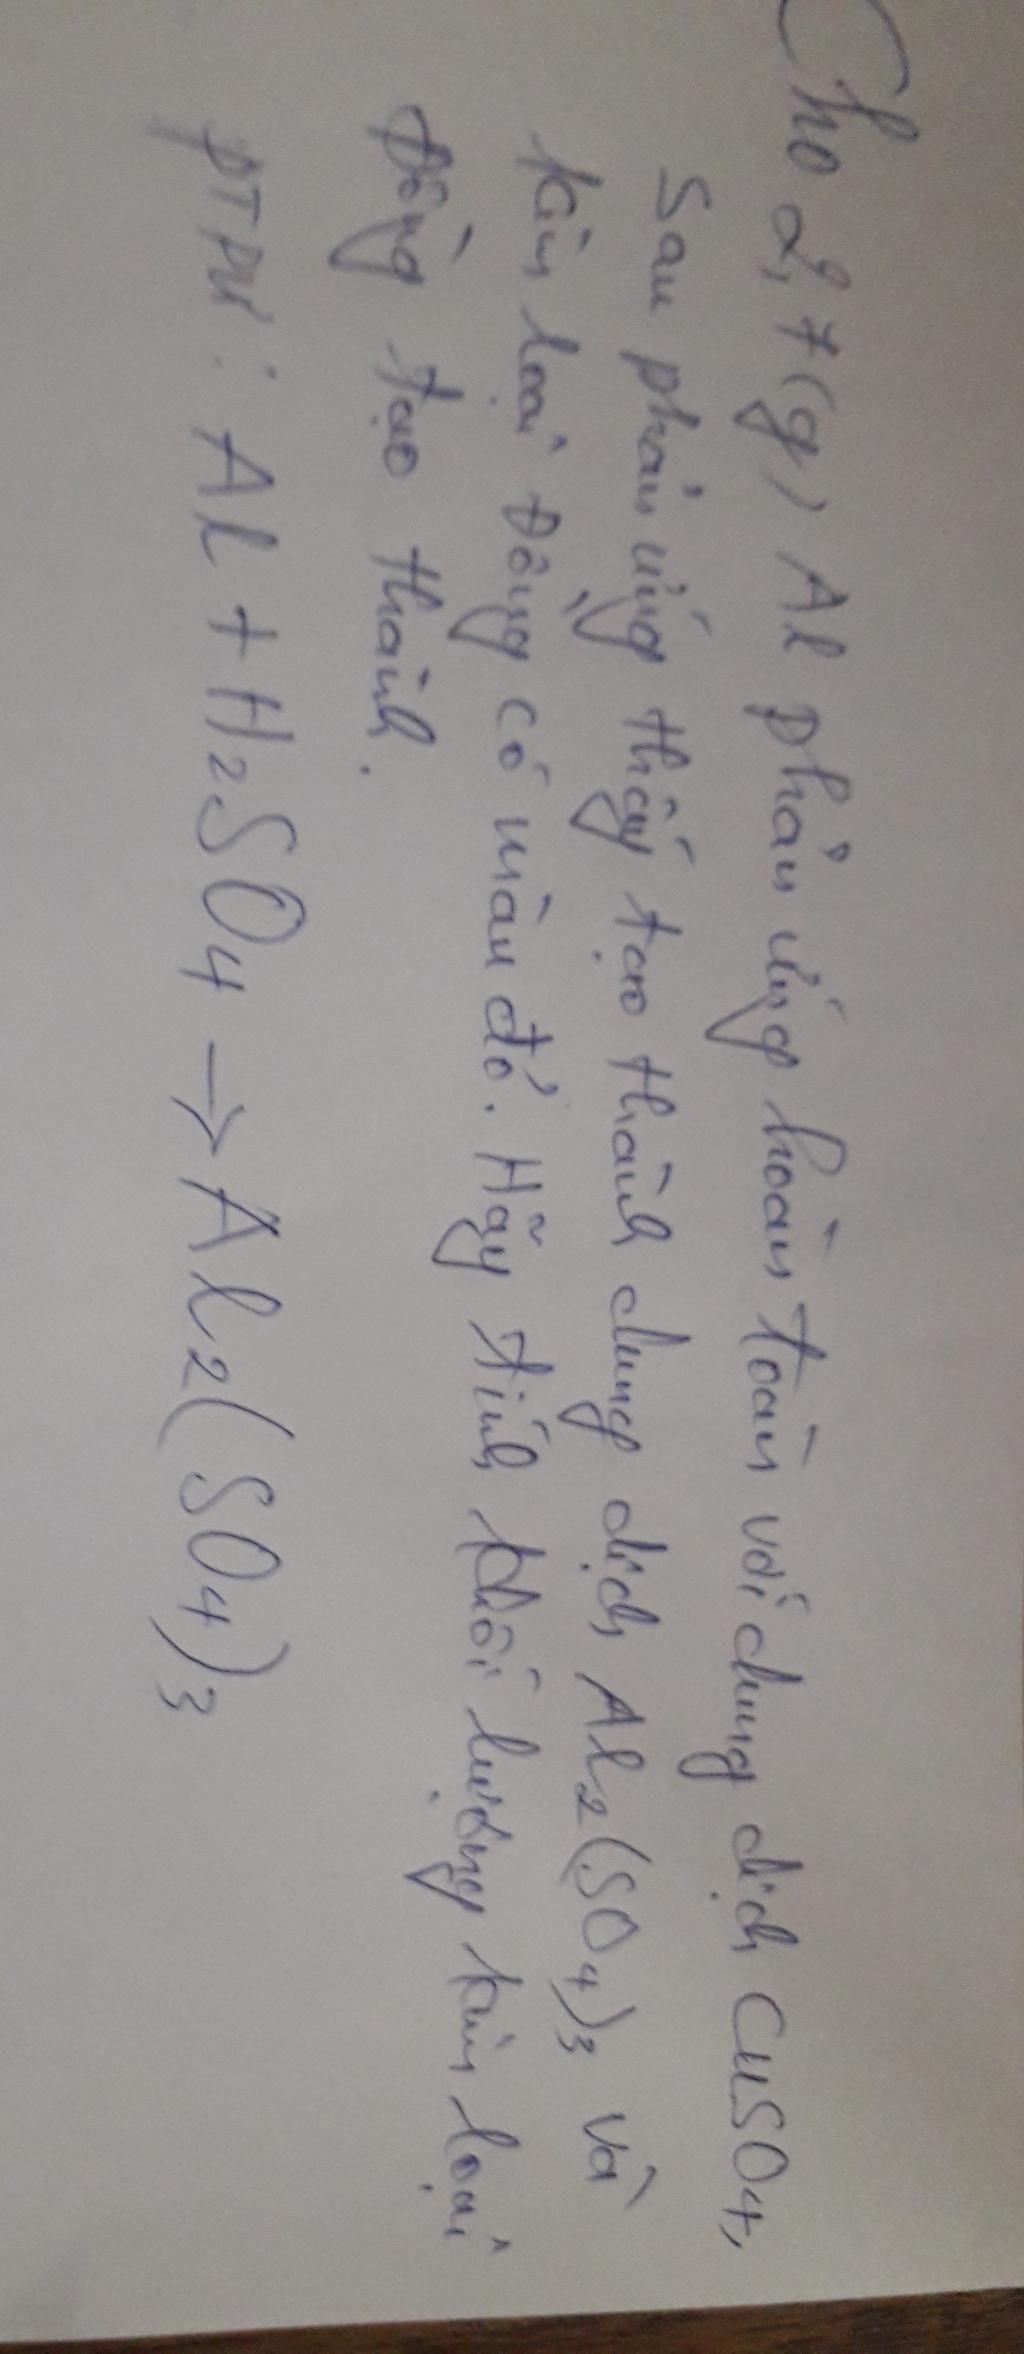 Cho 2,7(g) Al phản ứng hoàn toàn với dung dịch CuSO4,
sau phản ứng thấy tạo thành dung dịch Al2(SO4)3 và
kim loại Đồng có màu đỏ. Hãy tính khối lượng kim loại
Đồng tạo thành.
PTPƯ: Al + H2SO4 → Al2(SO4)3